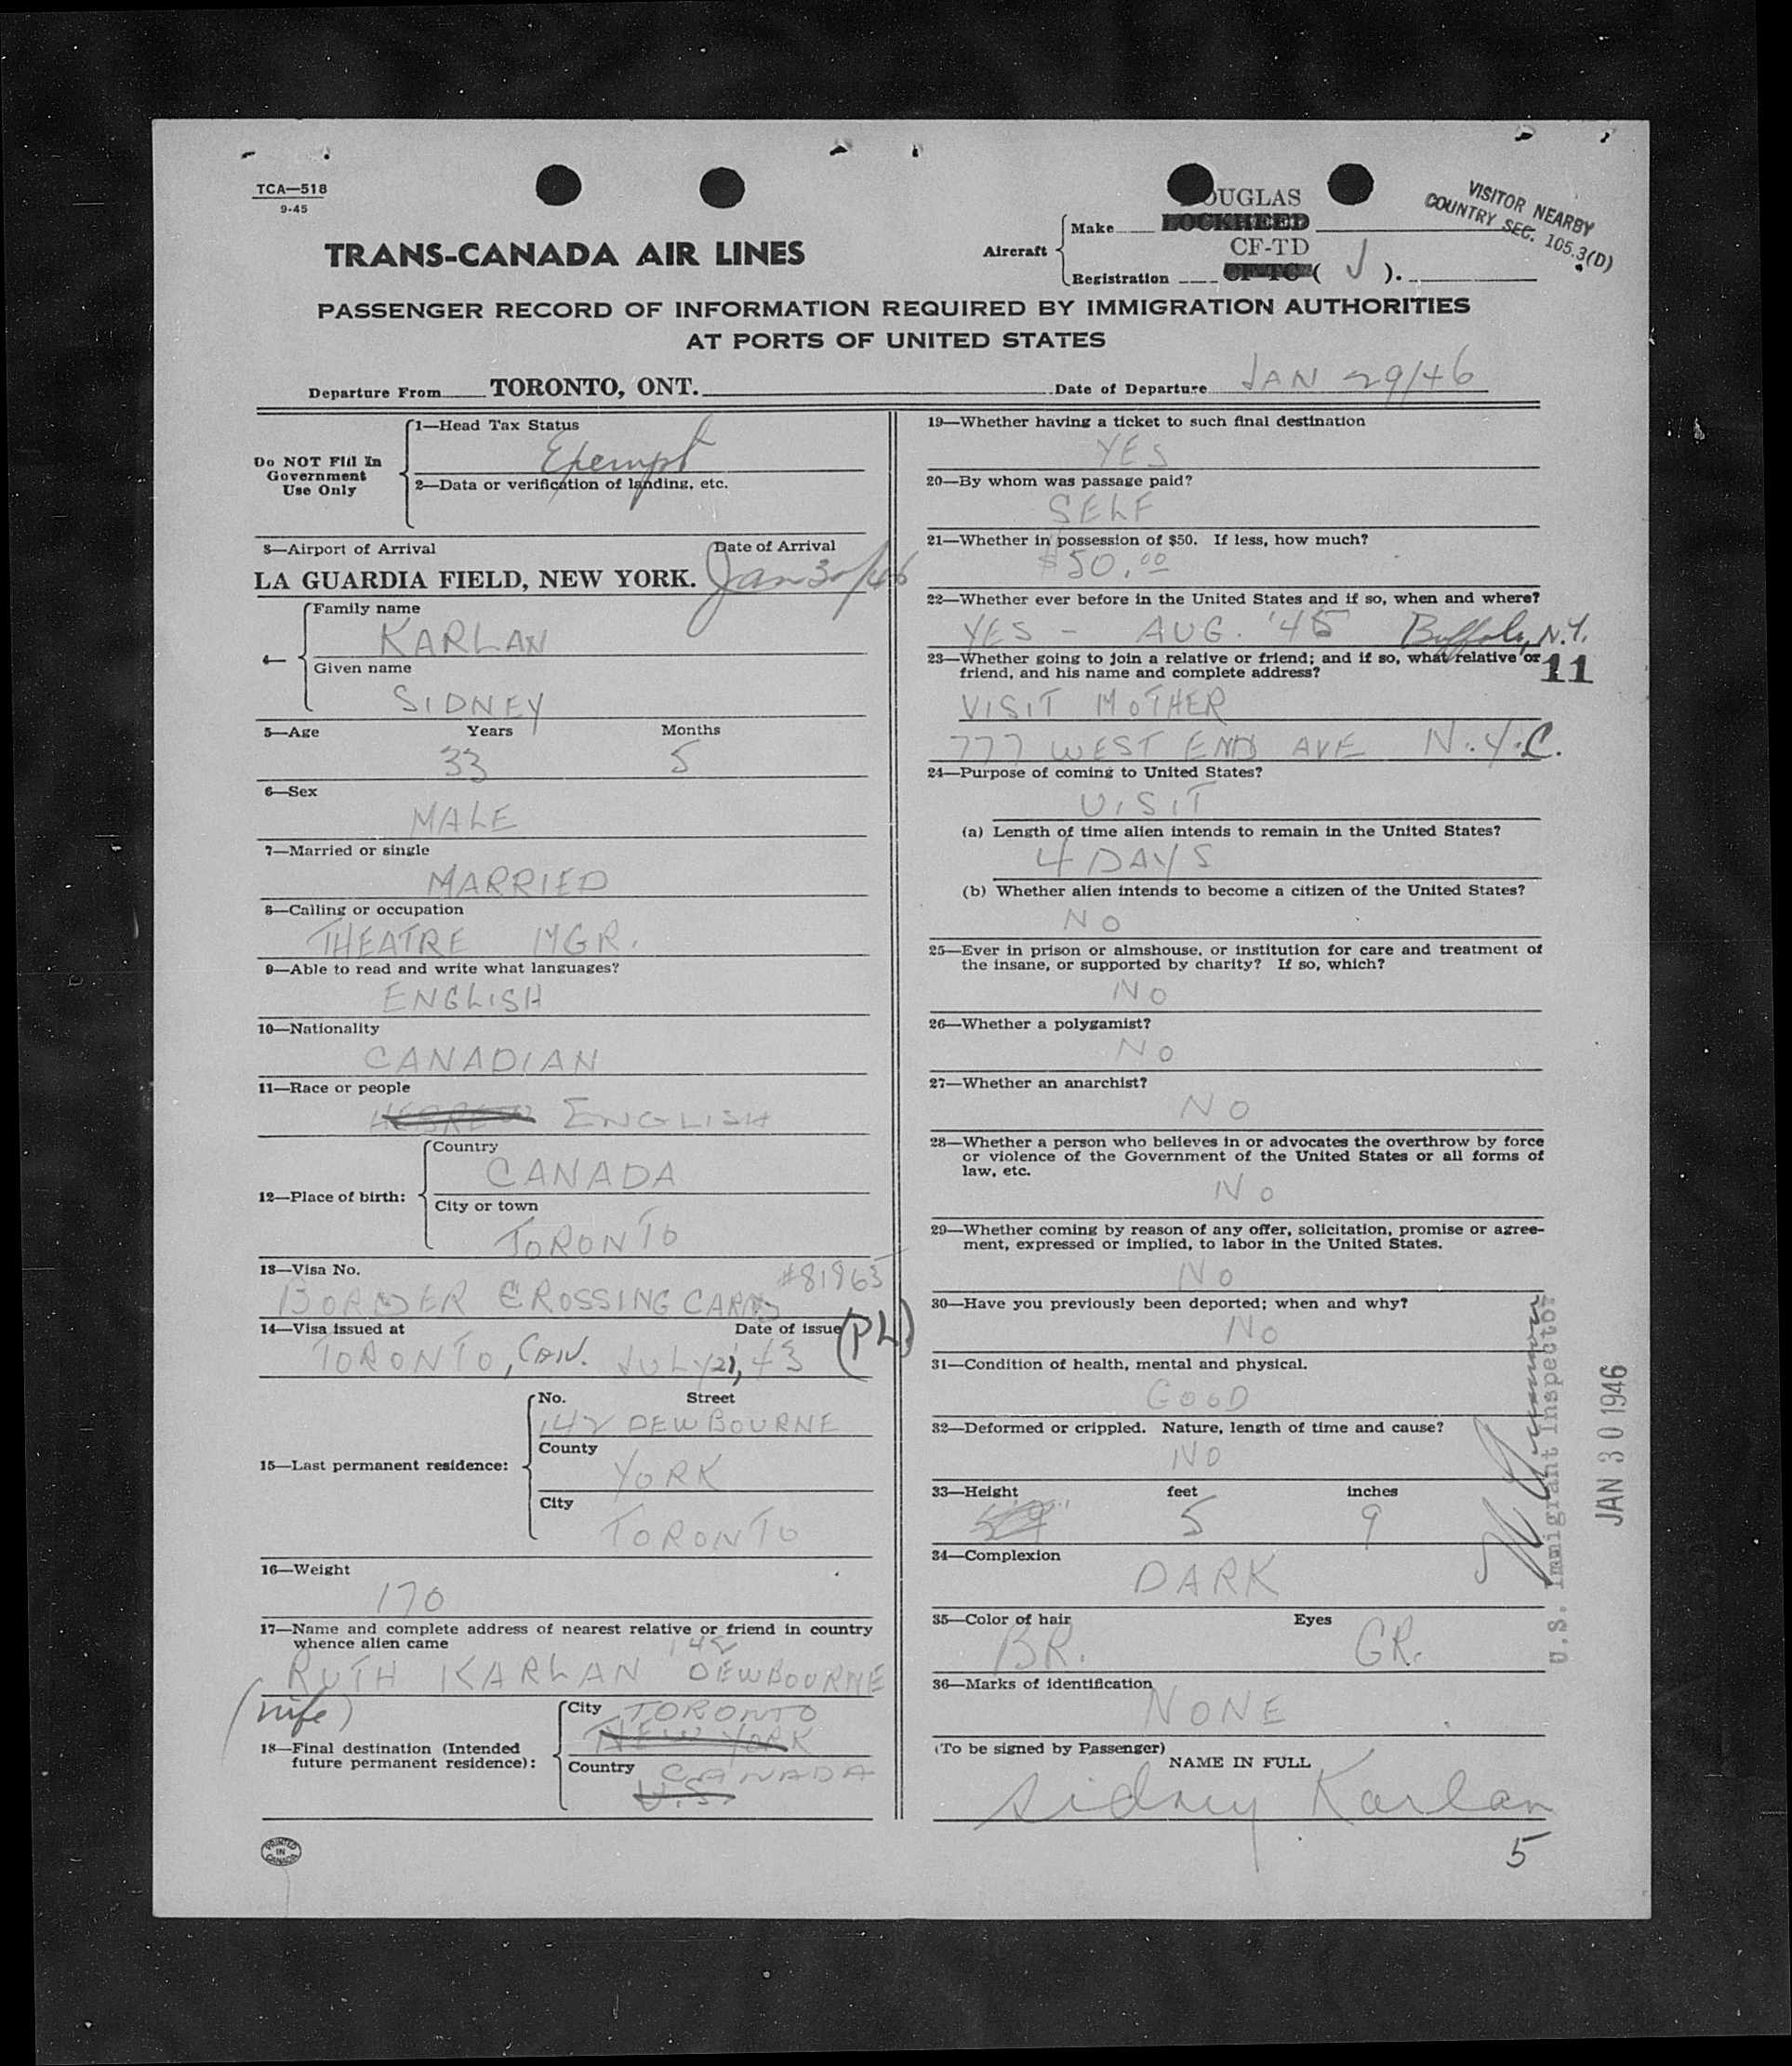 TCA—518
9-45
TRANS-CANADA AIR LINES
Aircraft
Make
DOUGLAS
LOCKHEED
CF-TD
Registration CF-TC ( J ).
VISITOR NEARBY
COUNTRY SEC. 105.3(D)
PASSENGER RECORD OF INFORMATION REQUIRED BY IMMIGRATION AUTHORITIES
AT PORTS OF UNITED STATES
Departure From TORONTO, ONT. Date of Departure JAN 29/46
Do NOT Fill In
Government
Use Only
1—Head Tax Status
Exempt
2—Data or verification of landing, etc.
3—Airport of Arrival Date of Arrival
LA GUARDIA FIELD, NEW YORK. Jan 30/46
4—
Family name
KARLAN
Given name
SIDNEY
5—Age Years Months
33 5
6—Sex
MALE
7—Married or single
MARRIED
8—Calling or occupation
THEATRE MGR.
9—Able to read and write what languages?
ENGLISH
10—Nationality
CANADIAN
11—Race or people
HEBREW ENGLISH
12—Place of birth:
Country
CANADA
City or town
TORONTO
13—Visa No. #81963
BORDER CROSSING CARD
14—Visa issued at Date of issue (PL)
TORONTO, CAN. JULY 21, 43
15—Last permanent residence:
No. Street
142 DEWBOURNE
County
YORK
City
TORONTO
16—Weight
170
17—Name and complete address of nearest relative or friend in country
whence alien came
142
RUTH KARLAN DEWBOURNE
(wife)
18—Final destination (Intended
future permanent residence):
City TORONTO
NEW YORK
Country CANADA
U.S.
PRINTED
IN
CANADA
19—Whether having a ticket to such final destination
YES
20—By whom was passage paid?
SELF
21—Whether in possession of $50. If less, how much?
$50.00
22—Whether ever before in the United States and if so, when and where?
YES - AUG. '45 Buffalo, N.Y.
23—Whether going to join a relative or friend; and if so, what relative or
friend, and his name and complete address?
11
VISIT MOTHER
777 WEST END AVE N.Y.C.
24—Purpose of coming to United States?
VISIT
(a) Length of time alien intends to remain in the United States?
4 DAYS
(b) Whether alien intends to become a citizen of the United States?
NO
25—Ever in prison or almshouse, or institution for care and treatment of
the insane, or supported by charity? If so, which?
NO
26—Whether a polygamist?
NO
27—Whether an anarchist?
NO
28—Whether a person who believes in or advocates the overthrow by force
or violence of the Government of the United States or all forms of
law, etc.
NO
29—Whether coming by reason of any offer, solicitation, promise or agree-
ment, expressed or implied, to labor in the United States.
NO
30—Have you previously been deported; when and why?
NO
31—Condition of health, mental and physical.
GOOD
32—Deformed or crippled. Nature, length of time and cause?
NO
33—Height feet inches
5 9
34—Complexion
DARK
35—Color of hair Eyes
BR. GR.
36—Marks of identification
NONE
(To be signed by Passenger)
NAME IN FULL
Sidney Karlan
5
U.S. Immigrant Inspector
JAN 30 1946